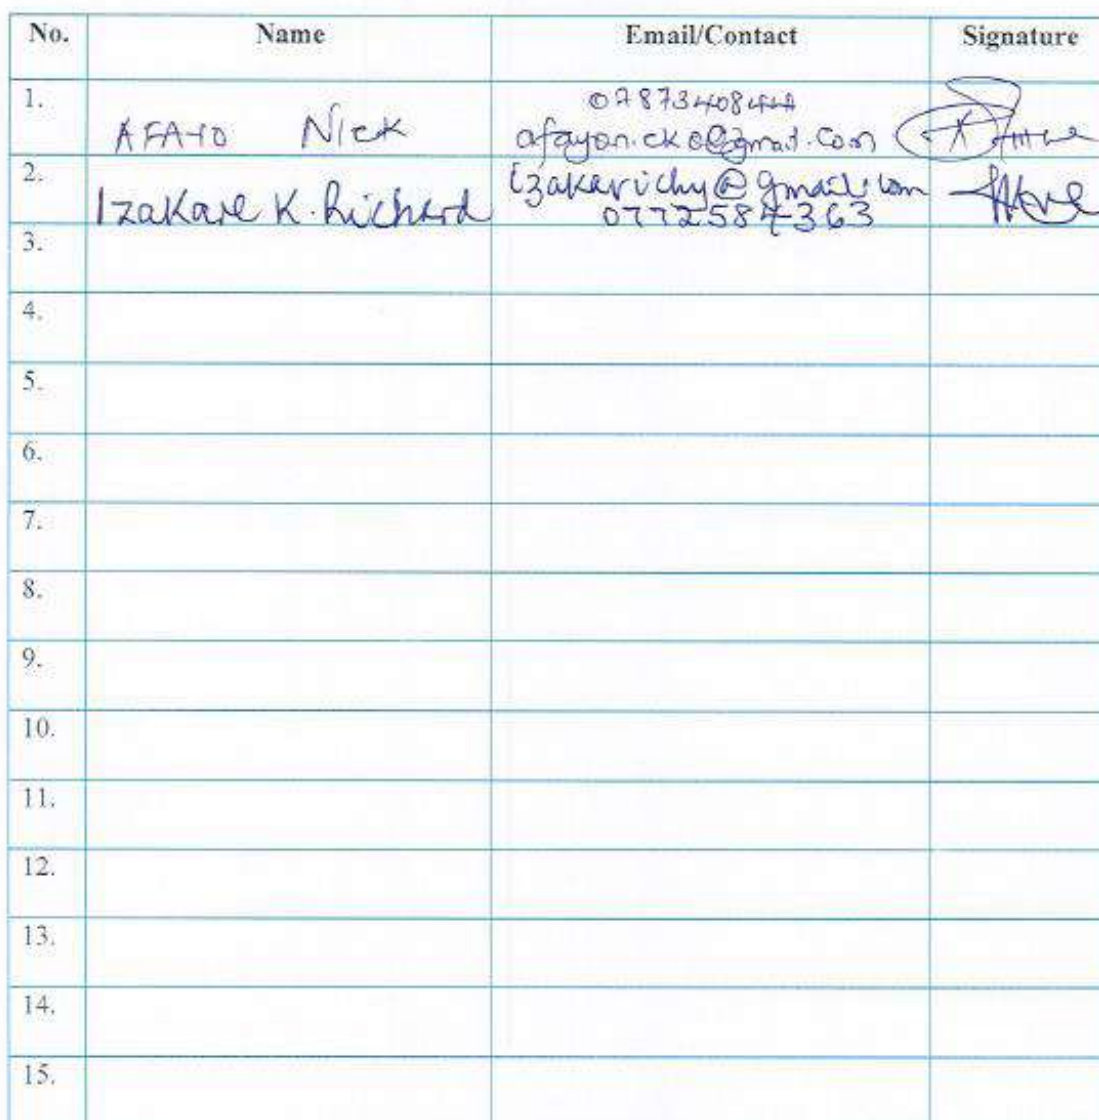 No. Name Email/Contact Signature
1. AFAYO Nick 0787340844
afayonicko@gmail.com
2. Izakare K. Richard izakarichy@gmail.com
0772584363
3.
4.
5.
6.
7.
8.
9.
10.
11.
12.
13.
14.
15.